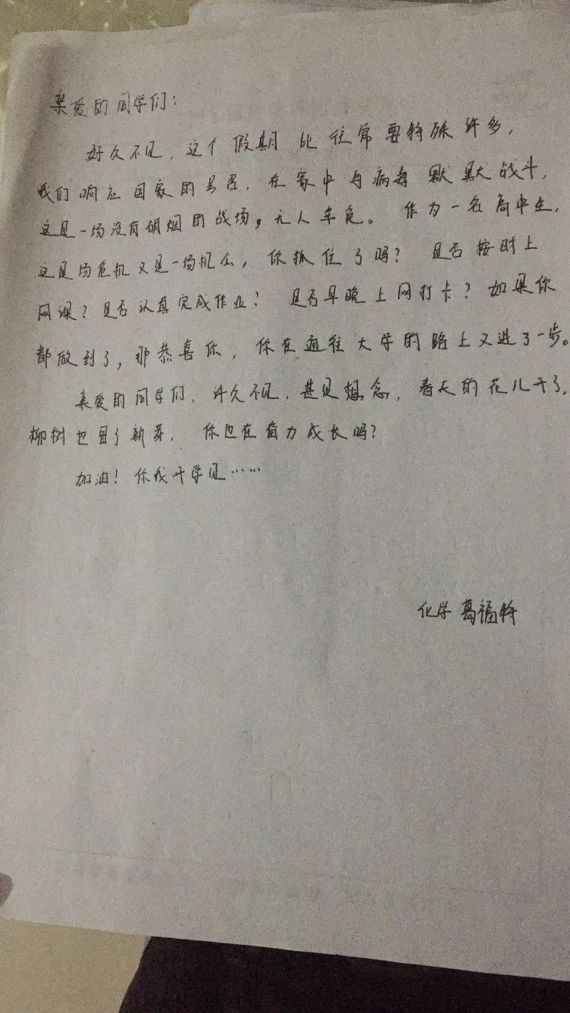 亲爱的同学们：
好久不见，这个假期比往常要特殊许多，
我们响应国家的号召，在家中与病毒默默战斗，
这是一场没有硝烟的战场，无人幸免。作为一名高中生，
这是场危机又是一场机会，你抓住了吗？是否按时上
网课？是否认真完成作业？是否早晚上网打卡？如果你
都做到了，那恭喜你，你在通往大学的路上又进了一步。
亲爱的同学们，许久不见，甚是想念，春天的花儿开了，
柳树也冒了新芽，你也在奋力成长吗？
加油！你我开学见……
化学 葛福铃